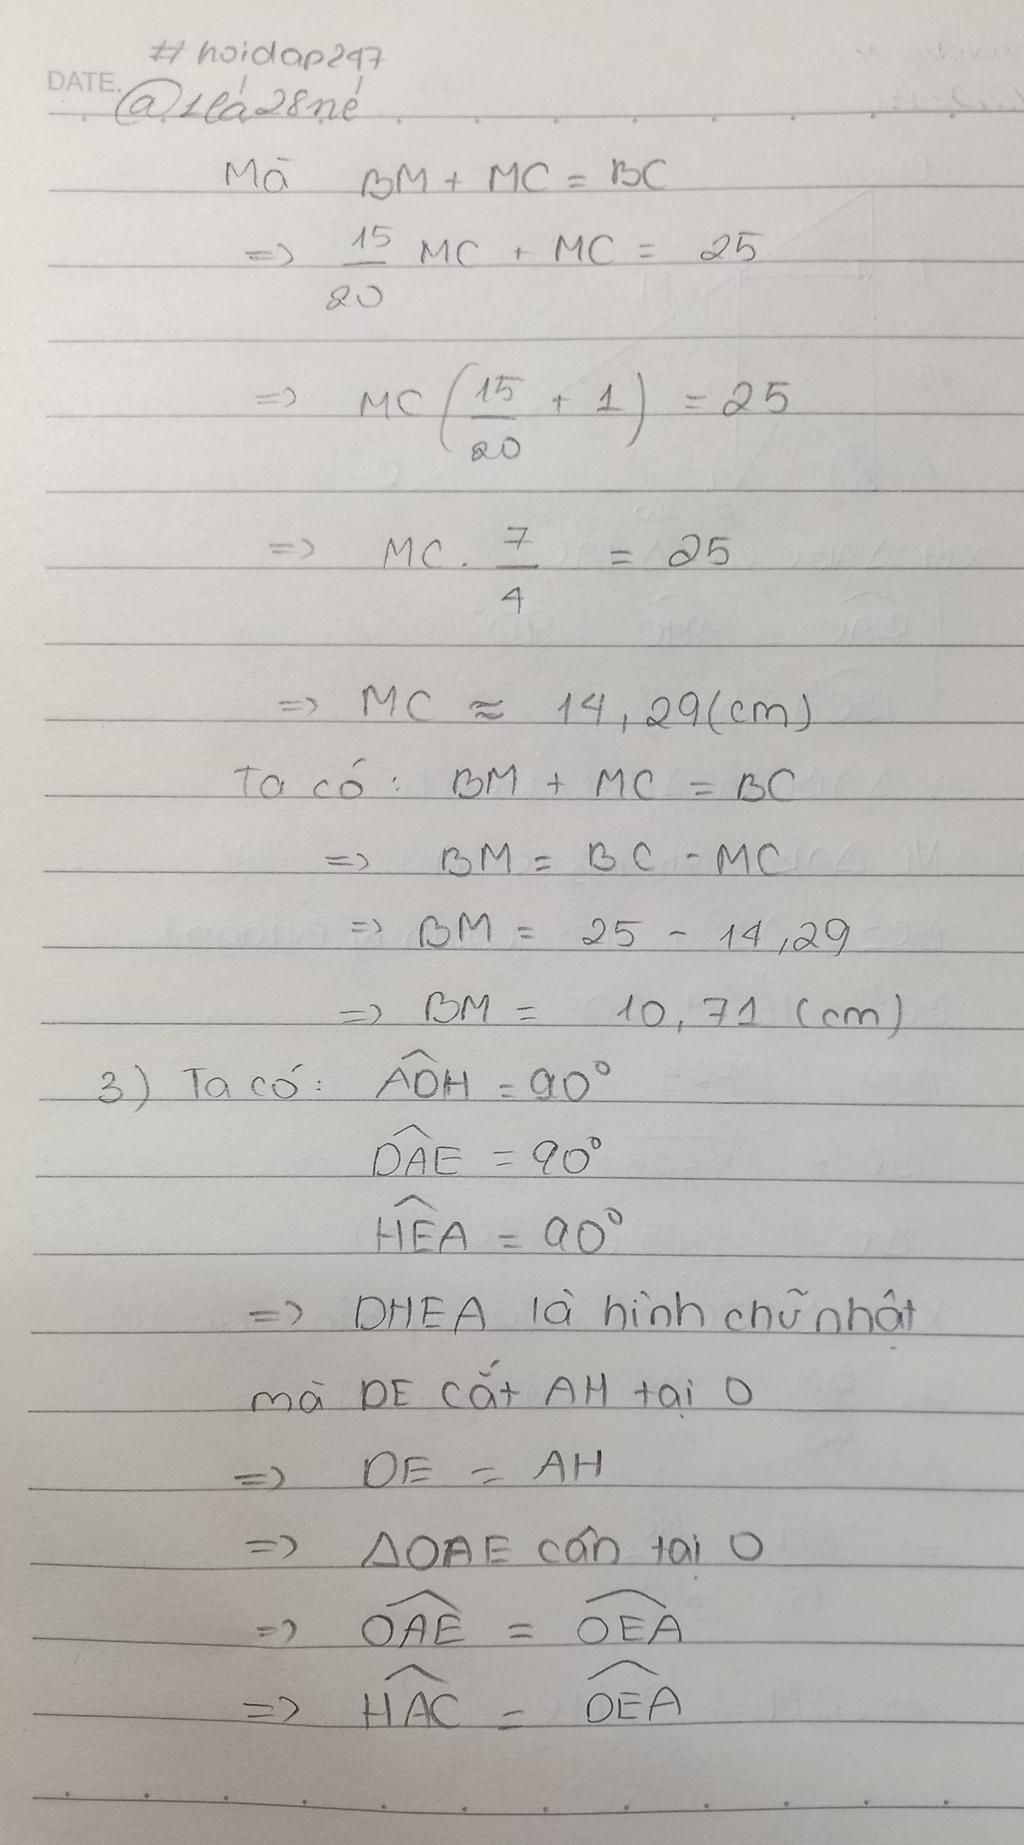 #hoidap247
DATE.
@1lá28né
Mà BM + MC = BC
=> 15/20 MC + MC = 25
=> MC (15/20 + 1) = 25
=> MC . 7/4 = 25
=> MC ≈ 14,29(cm)
Ta có: BM + MC = BC
=> BM = BC - MC
=> BM = 25 - 14,29
=> BM = 10,71 (cm)
3) Ta có: ADH = 90°
DAE = 90°
HEA = 90°
=> DHEA là hình chữ nhật
mà DE cắt AH tại O
=> DE = AH
=> ΔOAE cân tại O
=> OAE = OEA
=> HAC = DEA